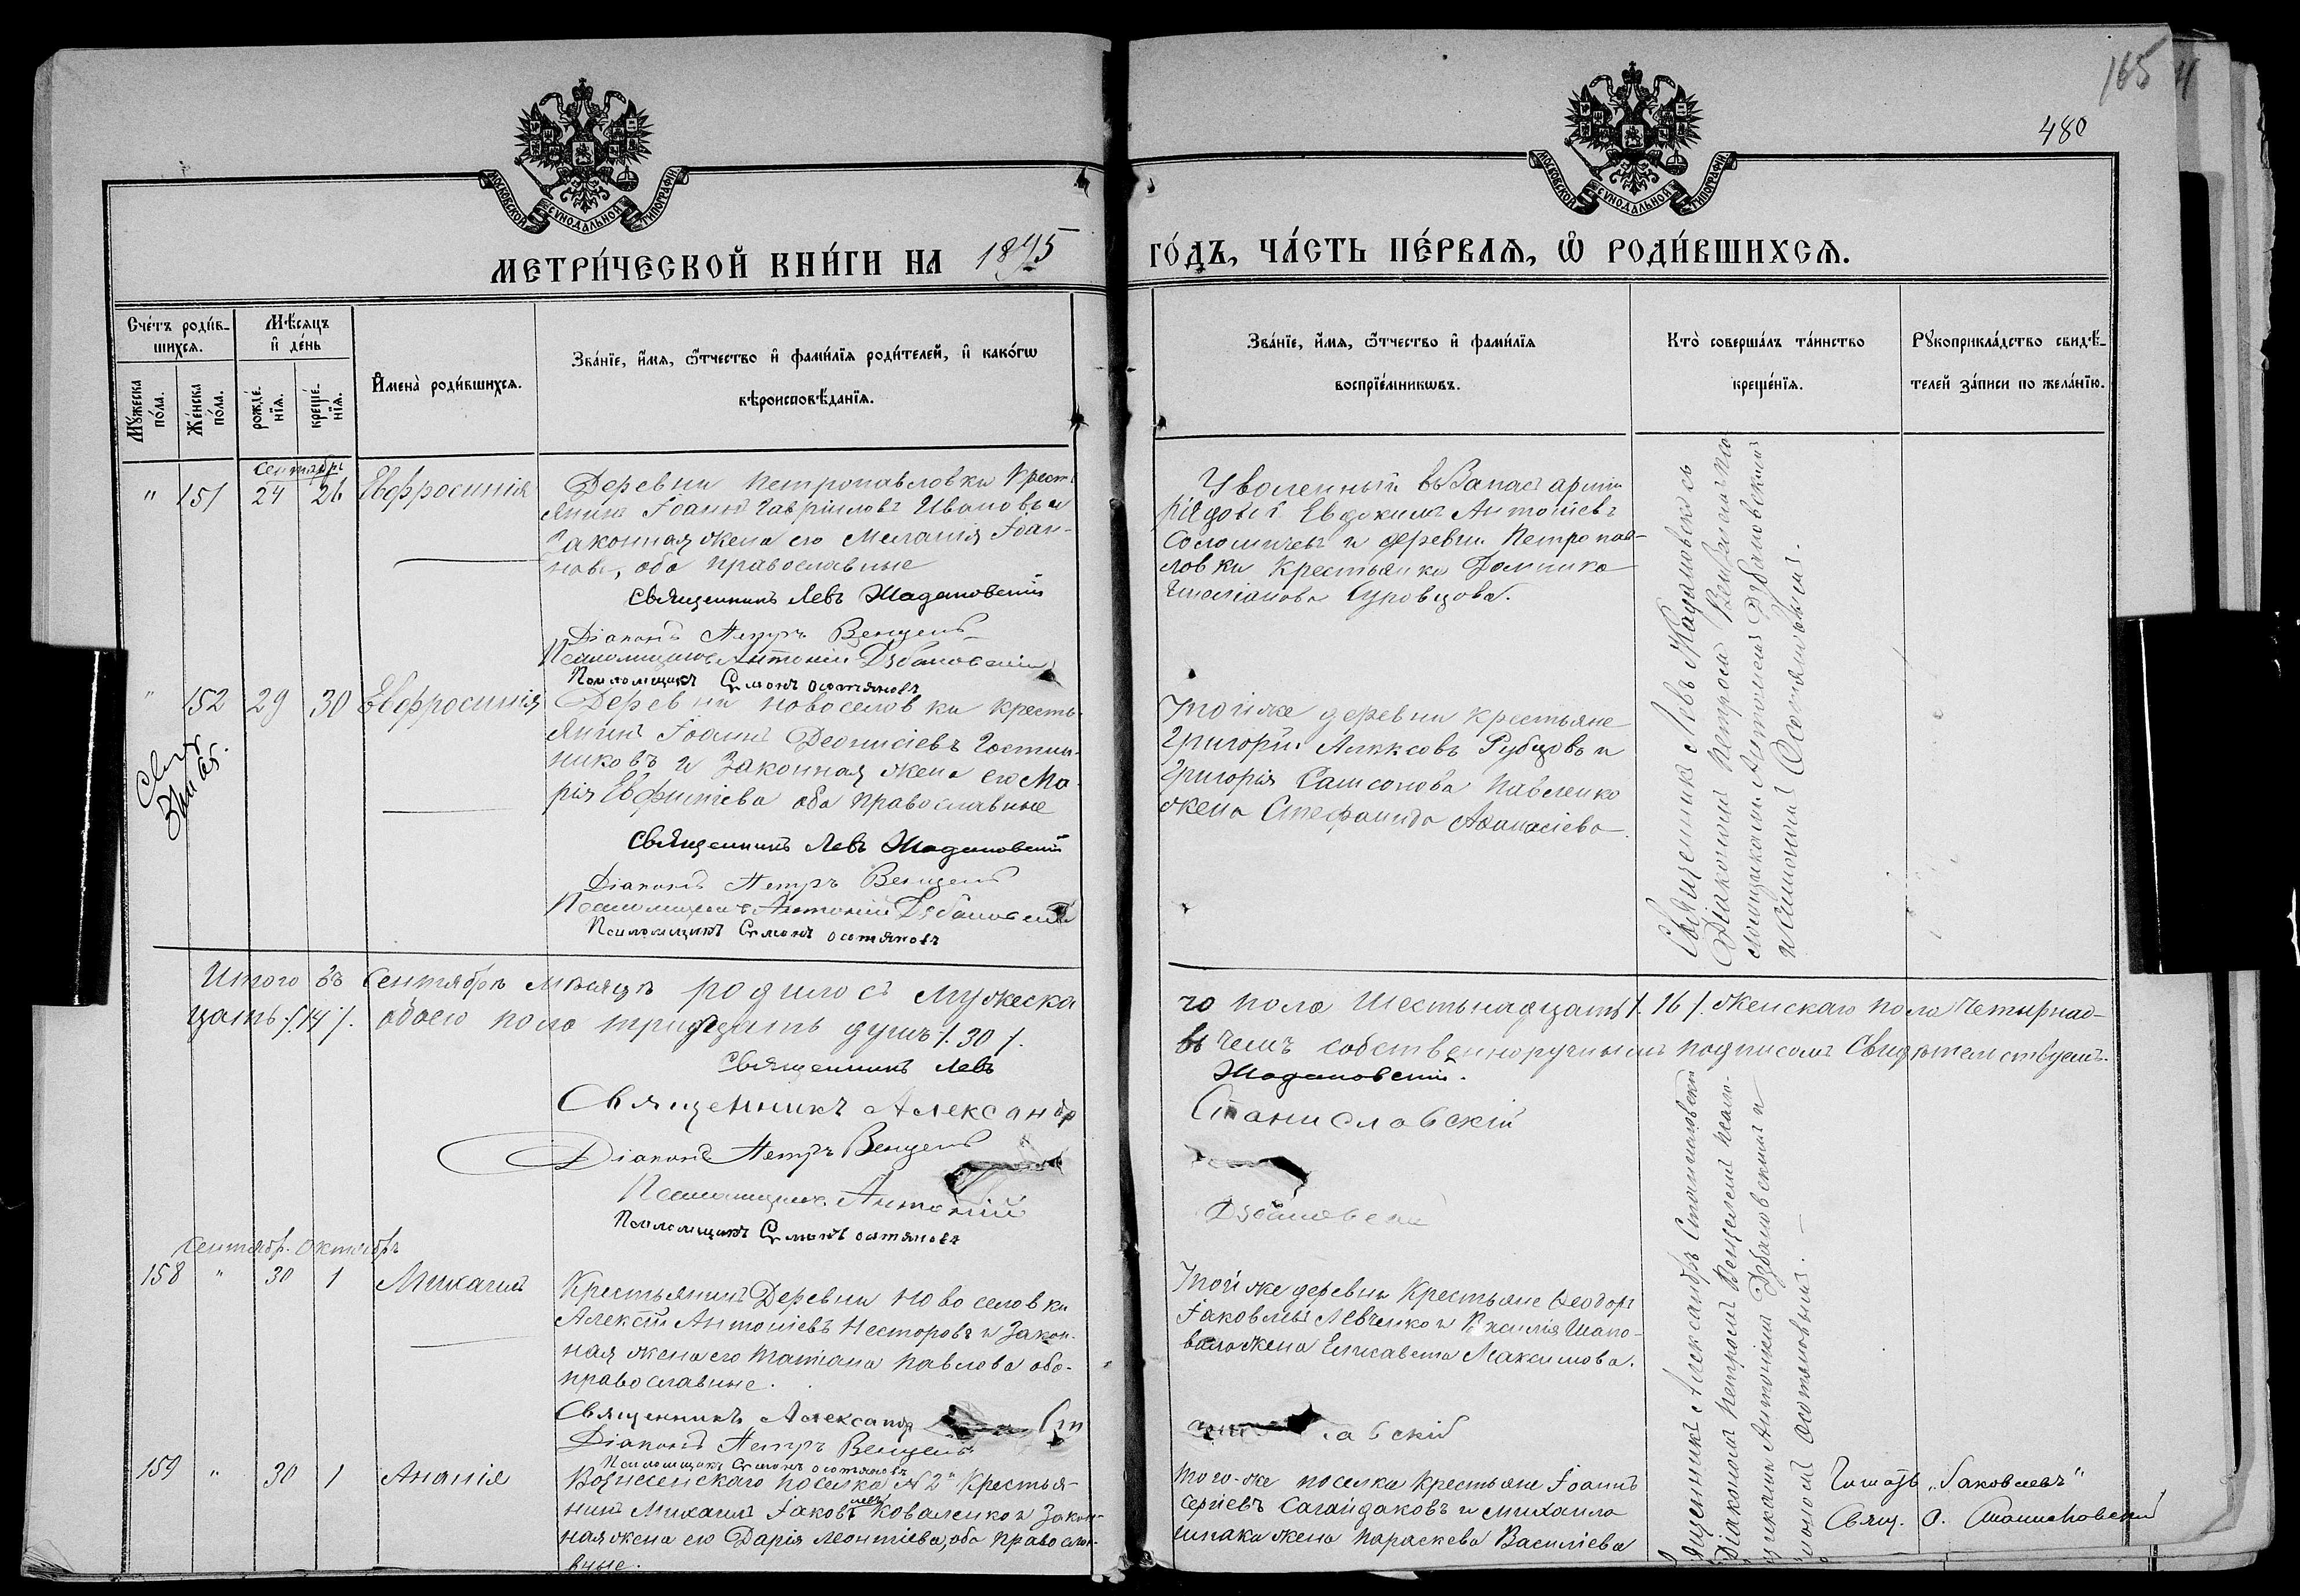 165
480
МОСКОВСКОЙ СѴНОДАЛЬНОЙ ТИПОГРАФІИ.
МОСКОВСКОЙ СѴНОДАЛЬНОЙ ТИПОГРАФІИ.
МЕТРИ́ЧЕСКОЙ КНИ́ГИ НА 1895
ГО́ДЪ, ЧА́СТЬ ПЕ́РВАЯ, Ѡ҆ РОДИ́ВШИХСЯ.
Сче́тъ роди́в-
шихся.
Мѣ́сяцъ
и҆ де́нь
Мꙋ́жеска
по́ла.
Же́нска
по́ла.
рожде́-
нїя.
креще́-
нїя.
И҆мена̀ роди́вшихся.
Зва́нїе, и҆́мя, ѻ҆́тчество и҆ фами́лїя роди́телей, и҆ како́гѡ
вѣроисповѣ́данїя.
Зва́нїе, и҆́мя, ѻ҆́тчество и҆ фами́лїя
воспрїе́мникѡвъ.
Кто̀ соверша́лъ та́инство
креще́нїя.
Рꙋкоприкла́дство свидѣ́-
телей за́писи по жела́нїю.
Сентябрь
" 151 24 26 Евфросинія
Деревни Петропавловки Крест
янинъ Іоаннъ Гавріиловъ Ивановъ и
Законная жена его Меланія Іоан-
нова, оба православные
Священникъ Левъ Жадановскій
Діаконъ Петръ Венцель
Псаломщикъ Антоній Дзбановскій
Псаломщикъ Симонъ Остяновъ
Уволенный въ Запасъ арміи
рядовый Евдокимъ Антоніевъ
и деревни Петропав-
ловки Крестьянка Домника
Суровцова.
Священникъ Левъ Жадановскій съ
Діакономъ Петромъ Венцелемъ Пса-
ломщиками Антоніемъ Дзбановскимъ
и Симономъ Остяновымъ.
" 152 29 30 Евфросинія
Деревни Новоселовки кресть-
янинъ Іоаннъ Діонисіевъ Гостин-
никовъ и Законная жена его Ма-
рія Евфиміева оба православные
Священникъ Левъ Жадановскій
Діаконъ Петръ Венцель
Псаломщикъ Антоній Дзбановскій
Псаломщикъ Симонъ Остяновъ
Той же деревни крестьяне
Григорій Рубцовъ и
Григорія Самсонова Павленко
жена Стефанида Аѳанасіева
Итого въ Сентябрѣ мѣсяцѣ родилось Мужеска
го пола Шестьнадцать /. 16 /. Женскаго пола Четырнад-
цать. /. 14 /. обоего пола тридцать душъ /. 30 /.
въ чемъ собственноручнымъ подписомъ Свидѣтельствуемъ.
Священникъ Левъ
Жадановскій.
Священникъ Александр
Станиславскій
Діаконъ Петръ Венцель
Псаломщикъ Антоній
Дзбановскій
Псаломщикъ Симонъ Остяновъ
Сентябр. Октябрь
158 " 30 1 Михаилъ
Крестьянинъ Деревни Новоселовки
Алексій Антоніевъ Несторовъ и Закон-
ная жена его Татіана Павлова оба-
православные.
Священникъ Александр Ст
авскій
Діаконъ Петръ Венцель
Псаломщикъ Симонъ Остяновъ
Той же деревни Крестьяне Ѳеодоръ
Іаковлевъ Левченко и Василія Шапо-
вала жена Елисавета Максимова.
Священникъ Александръ Станиславскій
Діакономъ Петромъ Венцелемъ Псалом-
щиками Антоніемъ Дзбановскимъ и
Симономъ Остяновымъ.
159 " 30 1 Ананія
Вознесенскаго поселка N 2й Крестья-
нинъ Михаилъ Іаковлевъ Коваленко и Закон-
ная жена его Дарія Леонтіева, оба Правосла-
вные.
Того-же поселка Крестьяне Іоаннъ
Сергіевъ Сагайдаковъ и Михаила
Шпака жена Параскева Василіева
Читать „Іаковлевъ"
Свящ. А. Станиславскій